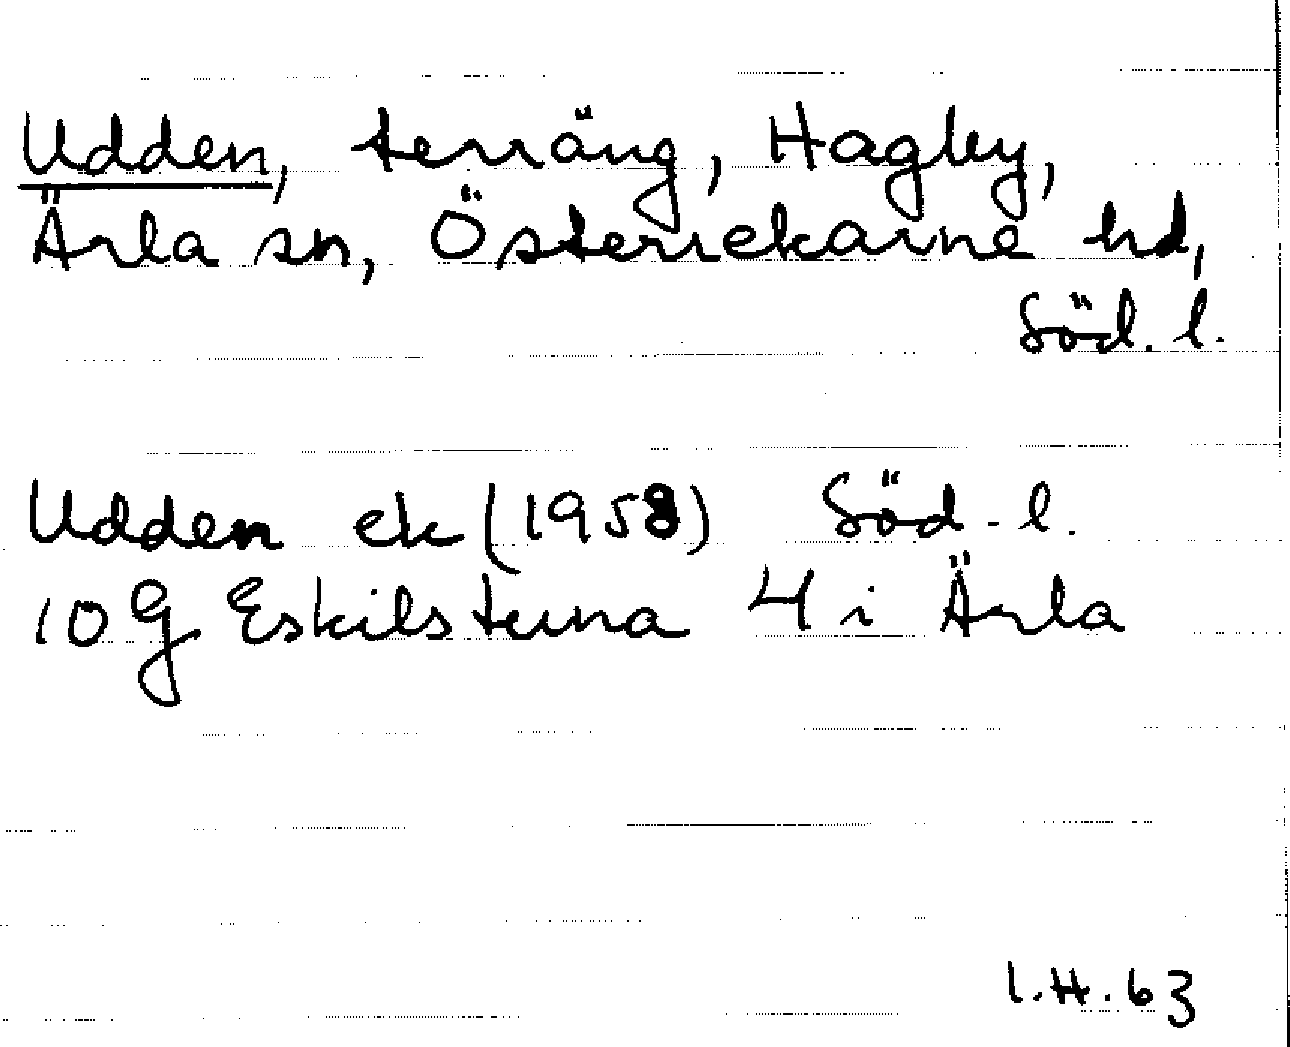 Udden, terräng, Hagby,
Ärla sn, Österrekarne hd,
Söd. l.
Udden ek (1958) Söd. l.
10 G Eskilstuna 4 i Ärla
I.H. 63